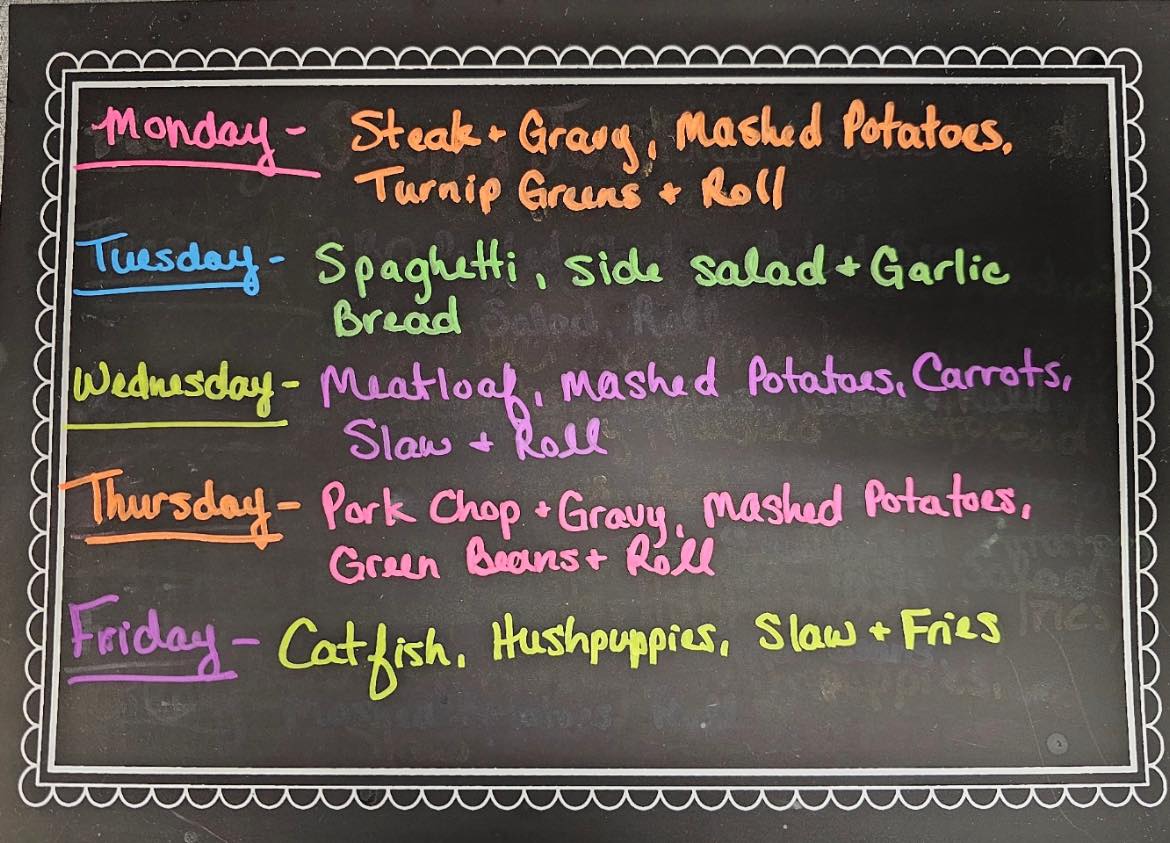 Monday - Steak + Gravy, Mashed Potatoes,
Turnip Greens + Roll
Tuesday - Spaghetti, side salad + Garlic
Bread
Wednesday - Meatloaf, Mashed Potatoes, Carrots,
Slaw + Roll
Thursday - Pork Chop + Gravy, Mashed Potatoes,
Green Beans + Roll
Friday - Catfish, Hushpuppies, Slaw + Fries